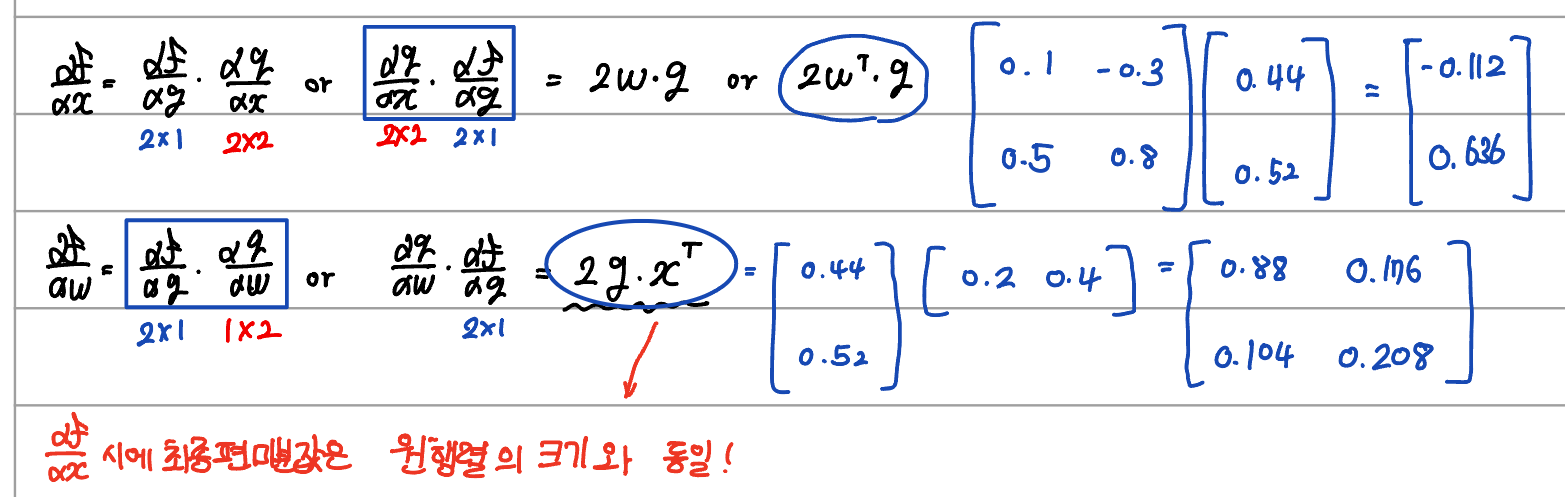 αf/αx = αf/αq · αq/αx or αq/αx · αf/αq = 2w·q or 2wᵀ·q [0.1 -0.3; 0.5 0.8] [0.44; 0.52] = [-0.112; 0.636]
2×1 2×2 2×2 2×1
αf/αw = αf/αq · αq/αw or αq/αw · αf/αq = 2q·xᵀ = [0.44; 0.52] [0.2 0.4] = [0.88 0.176; 0.104 0.208]
2×1 1×2 2×1
αf/αx 시에 최종편미분값은 원행렬의 크기와 동일!